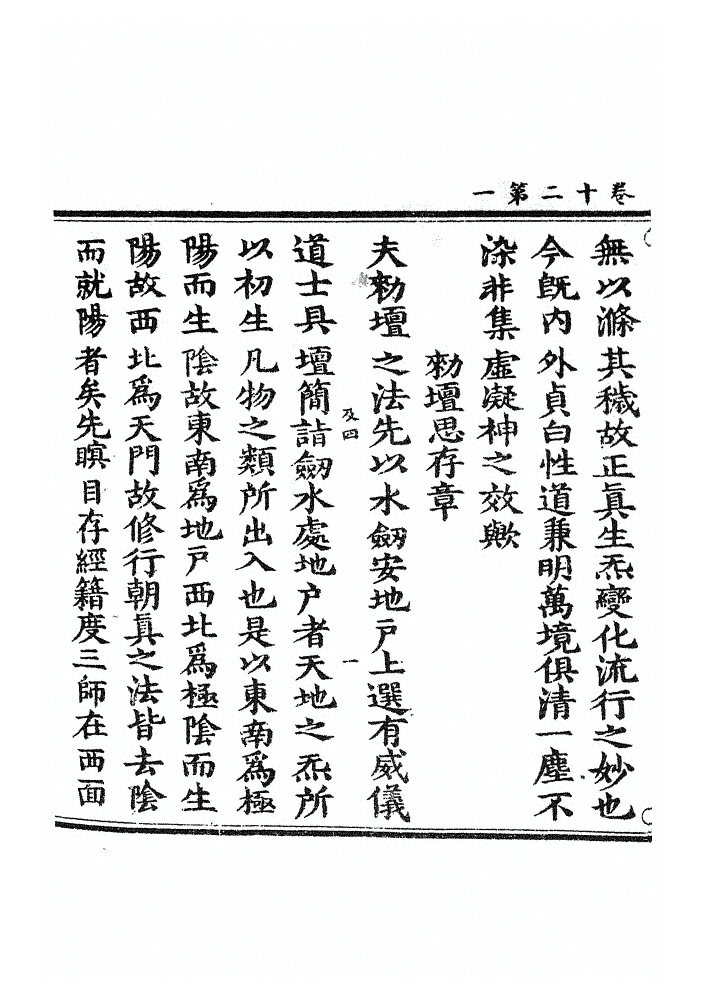 卷十二第一
無以滌其穢故正眞生炁變化流行之妙也
今旣內外貞白性道兼明萬境俱清一塵不
染非集虛凝神之效歟
勑壇思存章
夫勑壇之法先以水劔安地戶上選有威儀
及四 一
道士具壇簡詣劔水處地戶者天地之炁所
以初生凡物之類所出入也是以東南爲極
陽而生陰故東南爲地戶西北爲極陰而生
陽故西北爲天門故修行朝眞之法皆去陰
而就陽者矣先瞑目存經籍度三師在西面